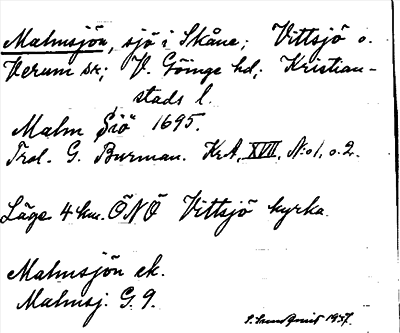 Malmsjön, sjö i Skåne; Vittsjö o.
Verum sk; V. Göinge hd; Kristian-
stads l.
Malm Siö 1695.
Trol. G. Burman. KrA, XVII, N:o 1, o. 2.
Läge 4 km. ÖNÖ Vittsjö kyrka
Malmsjön ek.
Malmsj. G. 9.
S. Landqvist 1937.